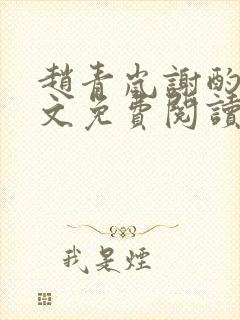 趙青嵐謝酌
文免費閱讀
我是煙